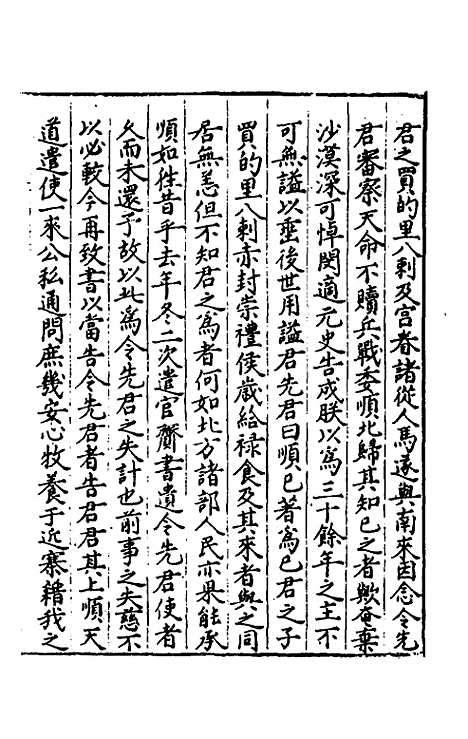 君之買的里八剌及宫眷諸從人馬遂與南來因念令先
君審察天命不贖兵戰委順北歸其知已之者歟奄棄
沙漠深可悼閔適元史告成朕以為三十餘年之主不
可無謚以垂後世用謚君先君曰順已著為巳君之子
買的里八剌亦封崇禮侯歲給禄食及其來者與之同
居無恙但不知君之為者何如北方諸部人民亦果能承
順如徃昔乎去年冬二次遣官齎書遺令先君使者
乆而未還予故以此為令先君之失計也前事之失慈不
以必較今再致書以當告令先君者告君君其上順天
道遣使一來公私通問庶幾安心牧養于近塞藉我之